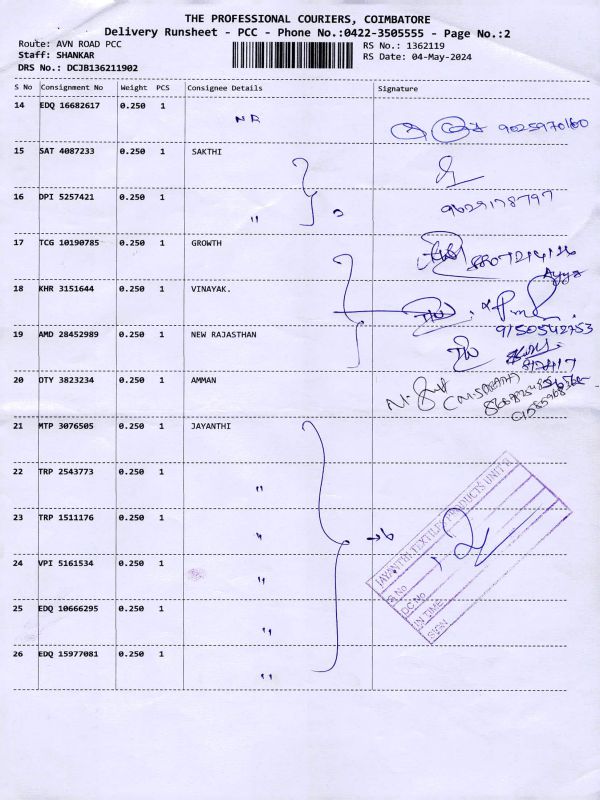 THE PROFESSIONAL COURIERS, COIMBATORE
Delivery Runsheet - PCC - Phone No.:0422-3505555 - Page No.:2
Route: AVN ROAD PCC
Staff: SHANKAR
DRS No.: DCJB136211902
RS No.: 1362119
RS Date: 04-May-2024
S No Consignment No Weight PCS Consignee Details Signature
14 EDQ 16682617 0.250 1
NR
9025970160
15 SAT 4087233 0.250 1 SAKTHI
16 DPI 5257421 0.250 1
" 2
9629178797
17 TCG 10190785 0.250 1 GROWTH
18 KHR 3151644 0.250 1 VINAYAK.
9150542753
19 AMD 28452989 0.250 1 NEW RAJASTHAN
20 OTY 3823234 0.250 1 AMMAN
21 MTP 3076505 0.250 1 JAYANTHI
22 TRP 2543773 0.250 1
"
23 TRP 1511176 0.250 1
"
→6
24 VPI 5161534 0.250 1
"
25 EDQ 10666295 0.250 1
"
26 EDQ 15977081 0.250 1
"
TEXTILE PRODUCTS UNIT
SI No
DC No
IN TIME
SIGN